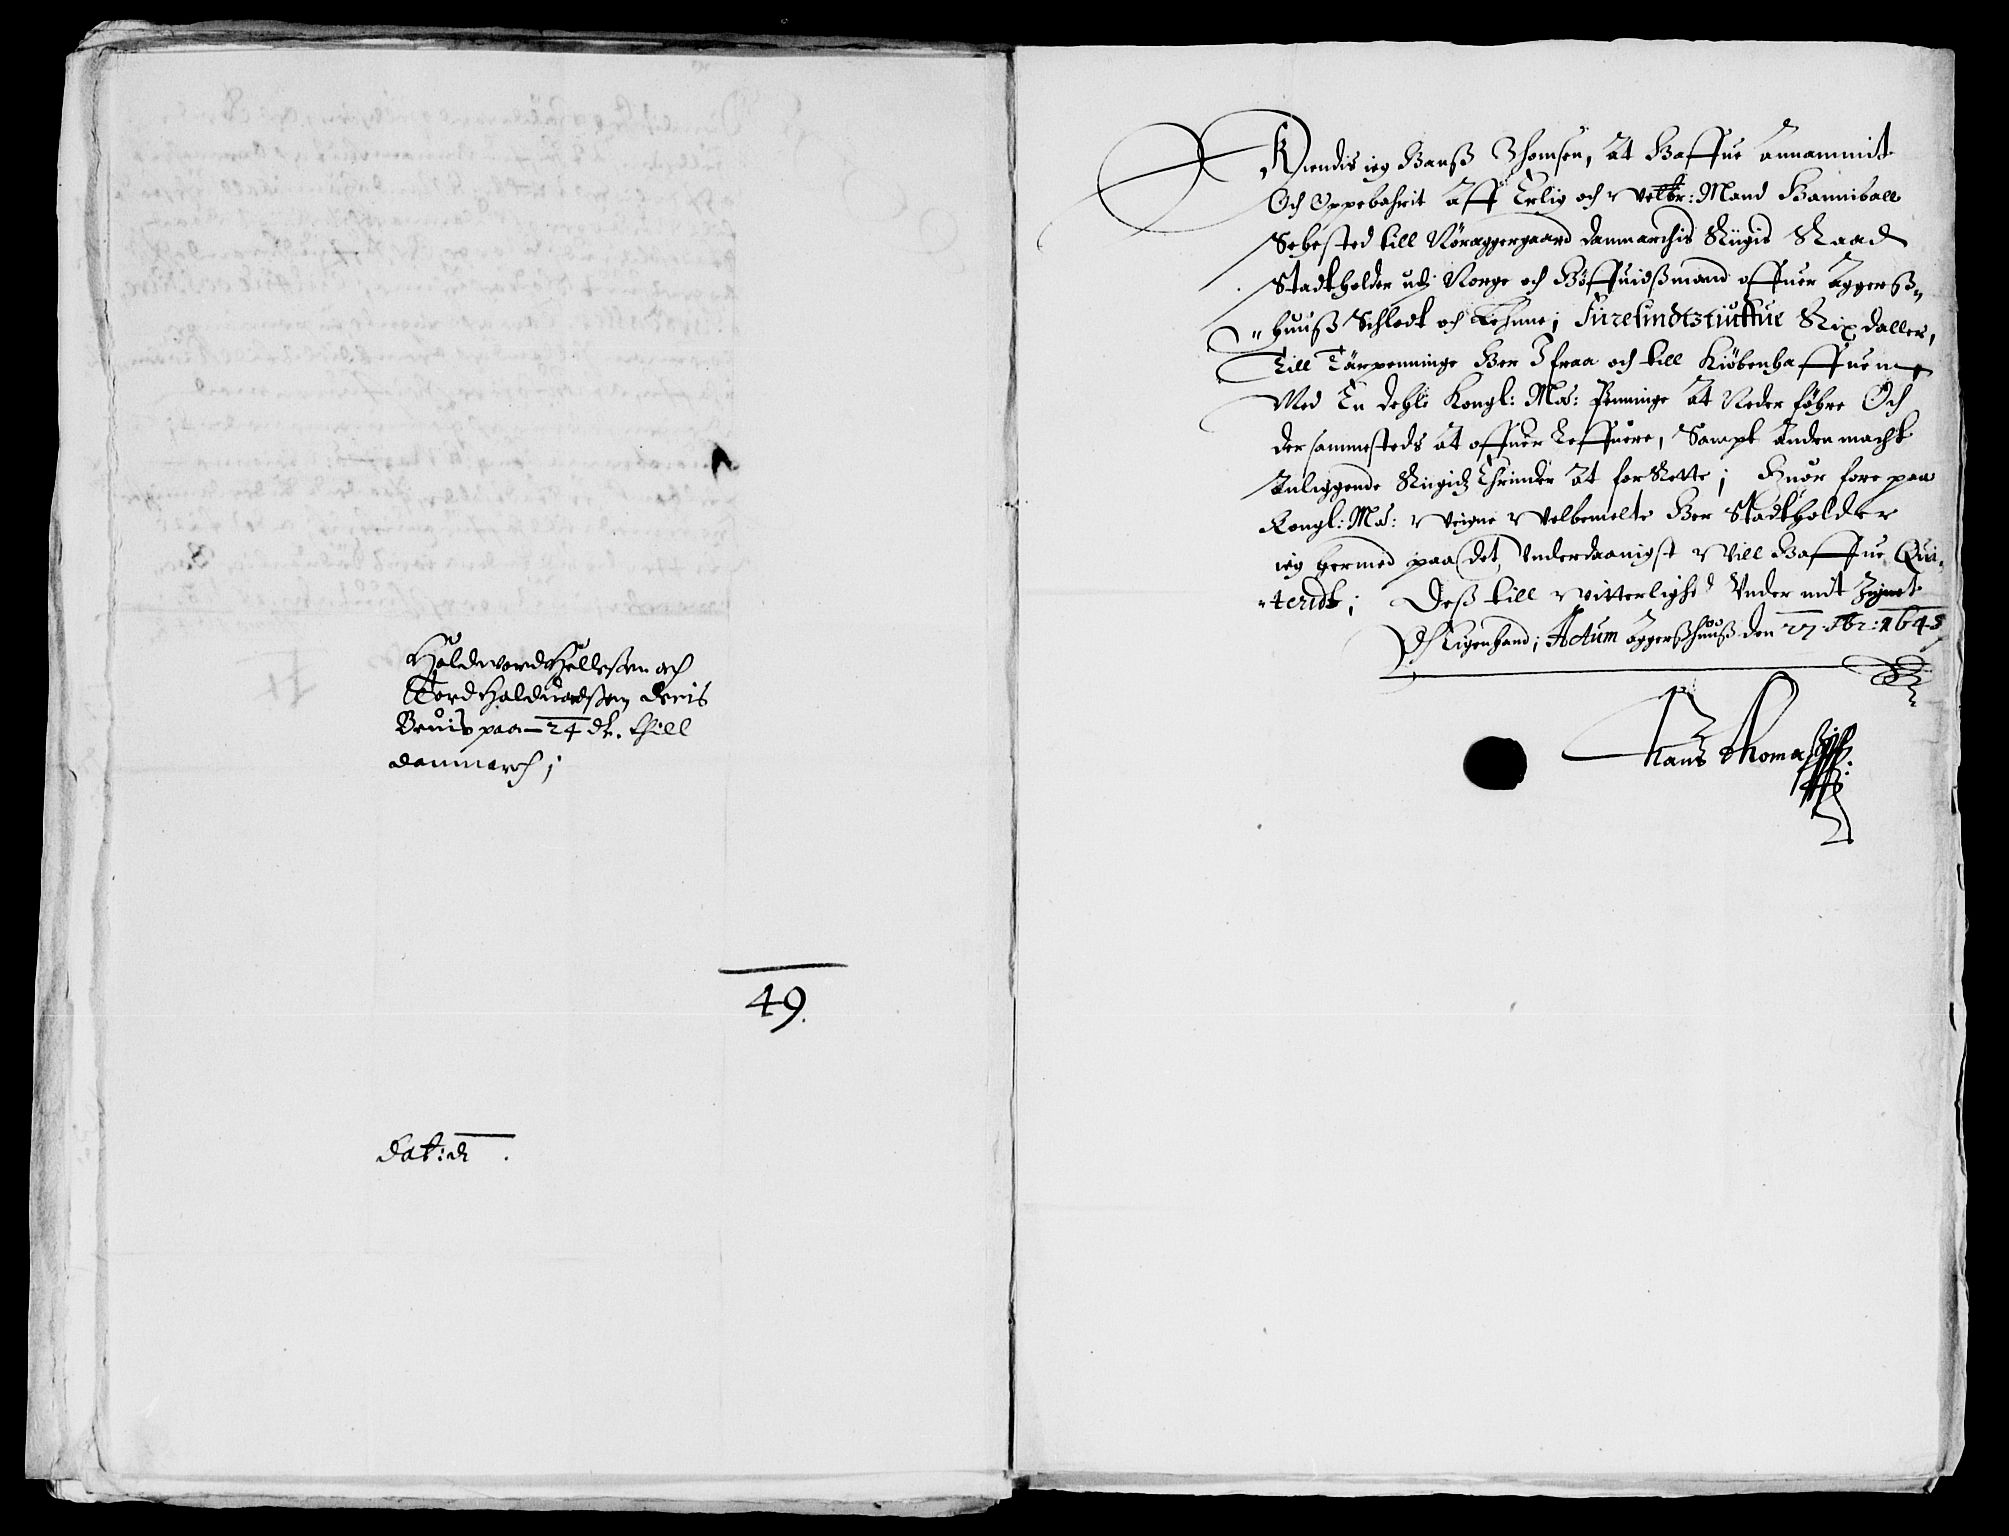 Haldword Hellessen och
Tord Halduordssøn deris
Beuis paa 24 dr. thill
danmarch;
49.
dat: d .
Kiendis ieg Hanß Thomsen, At Haffue Annammit
Och Oppebahrit Aff Erlig och Velbr: Mand Hanniball
Sehested till Nøraggergaard danmarchis Rigis Raad
Stadtholder udj Norge och Høffuidßmand offuer Aggerß-
huuß Schlodt och Lehnne; Fiiresindtztiuffue Rix daller,
Till Tärpenninge Her Ifraa och till Kiøbenhaffuen
Med En dehl Kongl: Ma: Penninge At Neder føhre Och
der sammesteds At offuer Leffuere, Sampt Anden macht
Anliggende Rigidz Ehrinder At forRette; Huor fore paa
Kongl: Ma: Veigne Velbemelte Her Stadtholder
ieg hermed paa det Vnderdaanigst Vill Haffue Qui-
teridt; Deß till Vitterlighd Vnder mit Zignet
Och Eigenhand; Actum Aggerßhuuß den 27 8br: 1648
Hans Thomassen